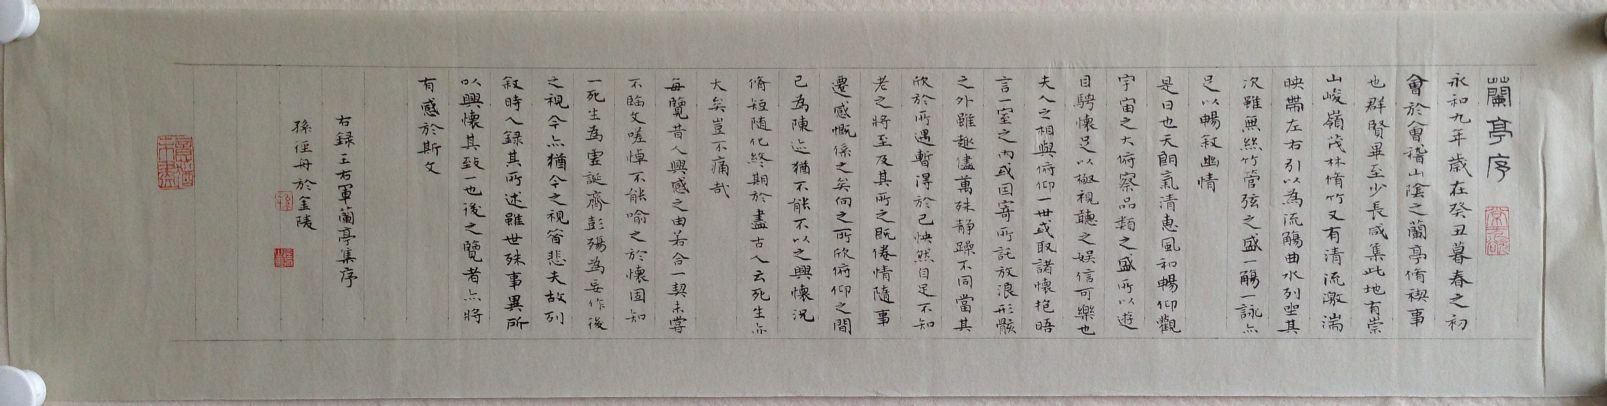 蘭亭序
永和九年歲在癸丑暮春之初
會於會稽山陰之蘭亭脩禊事
也群賢畢至少長咸集此地有崇
山峻嶺茂林脩竹又有清流激湍
映帶左右引以為流觴曲水列坐其
次雖無絲竹管弦之盛一觴一詠亦
足以暢敘幽情
是日也天朗氣清惠風和暢仰觀
宇宙之大俯察品類之盛所以遊
目騁懷足以極視聽之娛信可樂也
夫人之相與俯仰一世或取諸懷抱晤
言一室之內或因寄所託放浪形骸
之外雖趣儘萬殊靜躁不同當其
欣於所遇暫得於己怏然自足不知
老之將至及其所之既倦情隨事
遷感慨係之矣向之所欣俯仰之間
已為陳迹猶不能不以之興懷況
脩短隨化終期於盡古人云死生亦
大矣豈不痛哉
每覽昔人興感之由若合一契未嘗
不臨文嗟悼不能喻之於懷固知
一死生為虛誕齊彭殤為妄作後
之視今亦猶今之視昔悲夫故列
敘時人錄其所述雖世殊事異所
以興懷其致一也後之覽者亦將
有感於斯文
右錄王右軍蘭亭集序
孫 於金陵